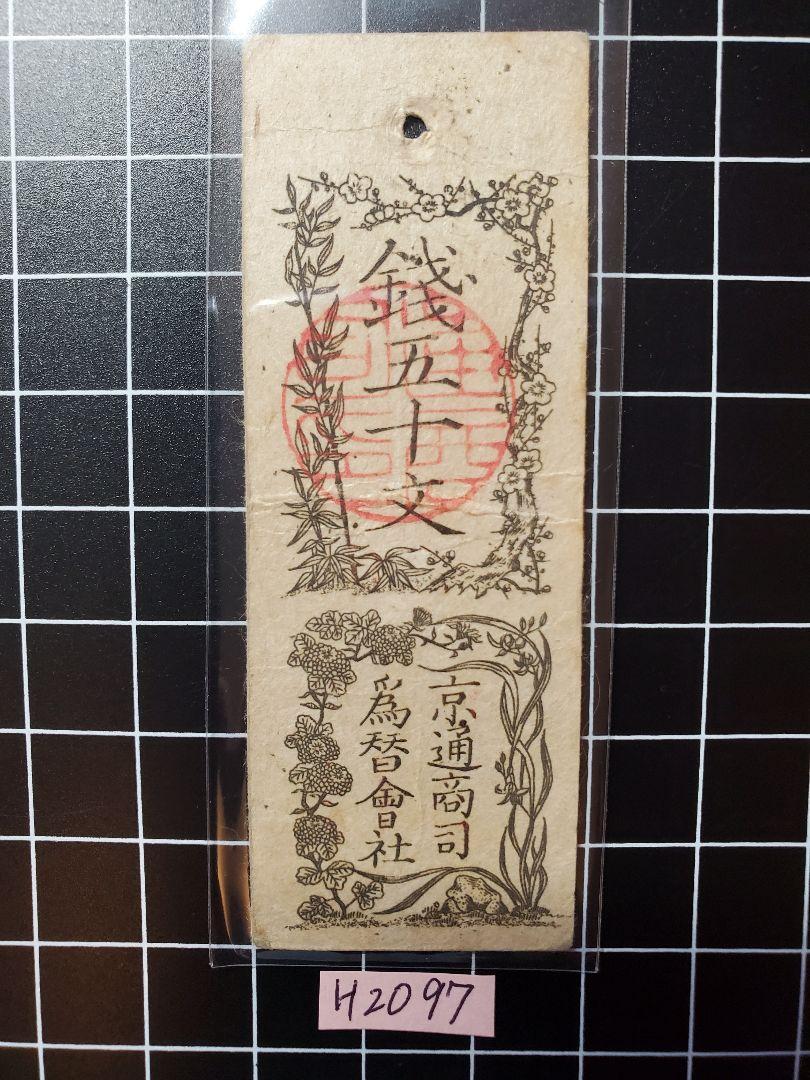 錢五十文
京通商司
為替會社
H2097